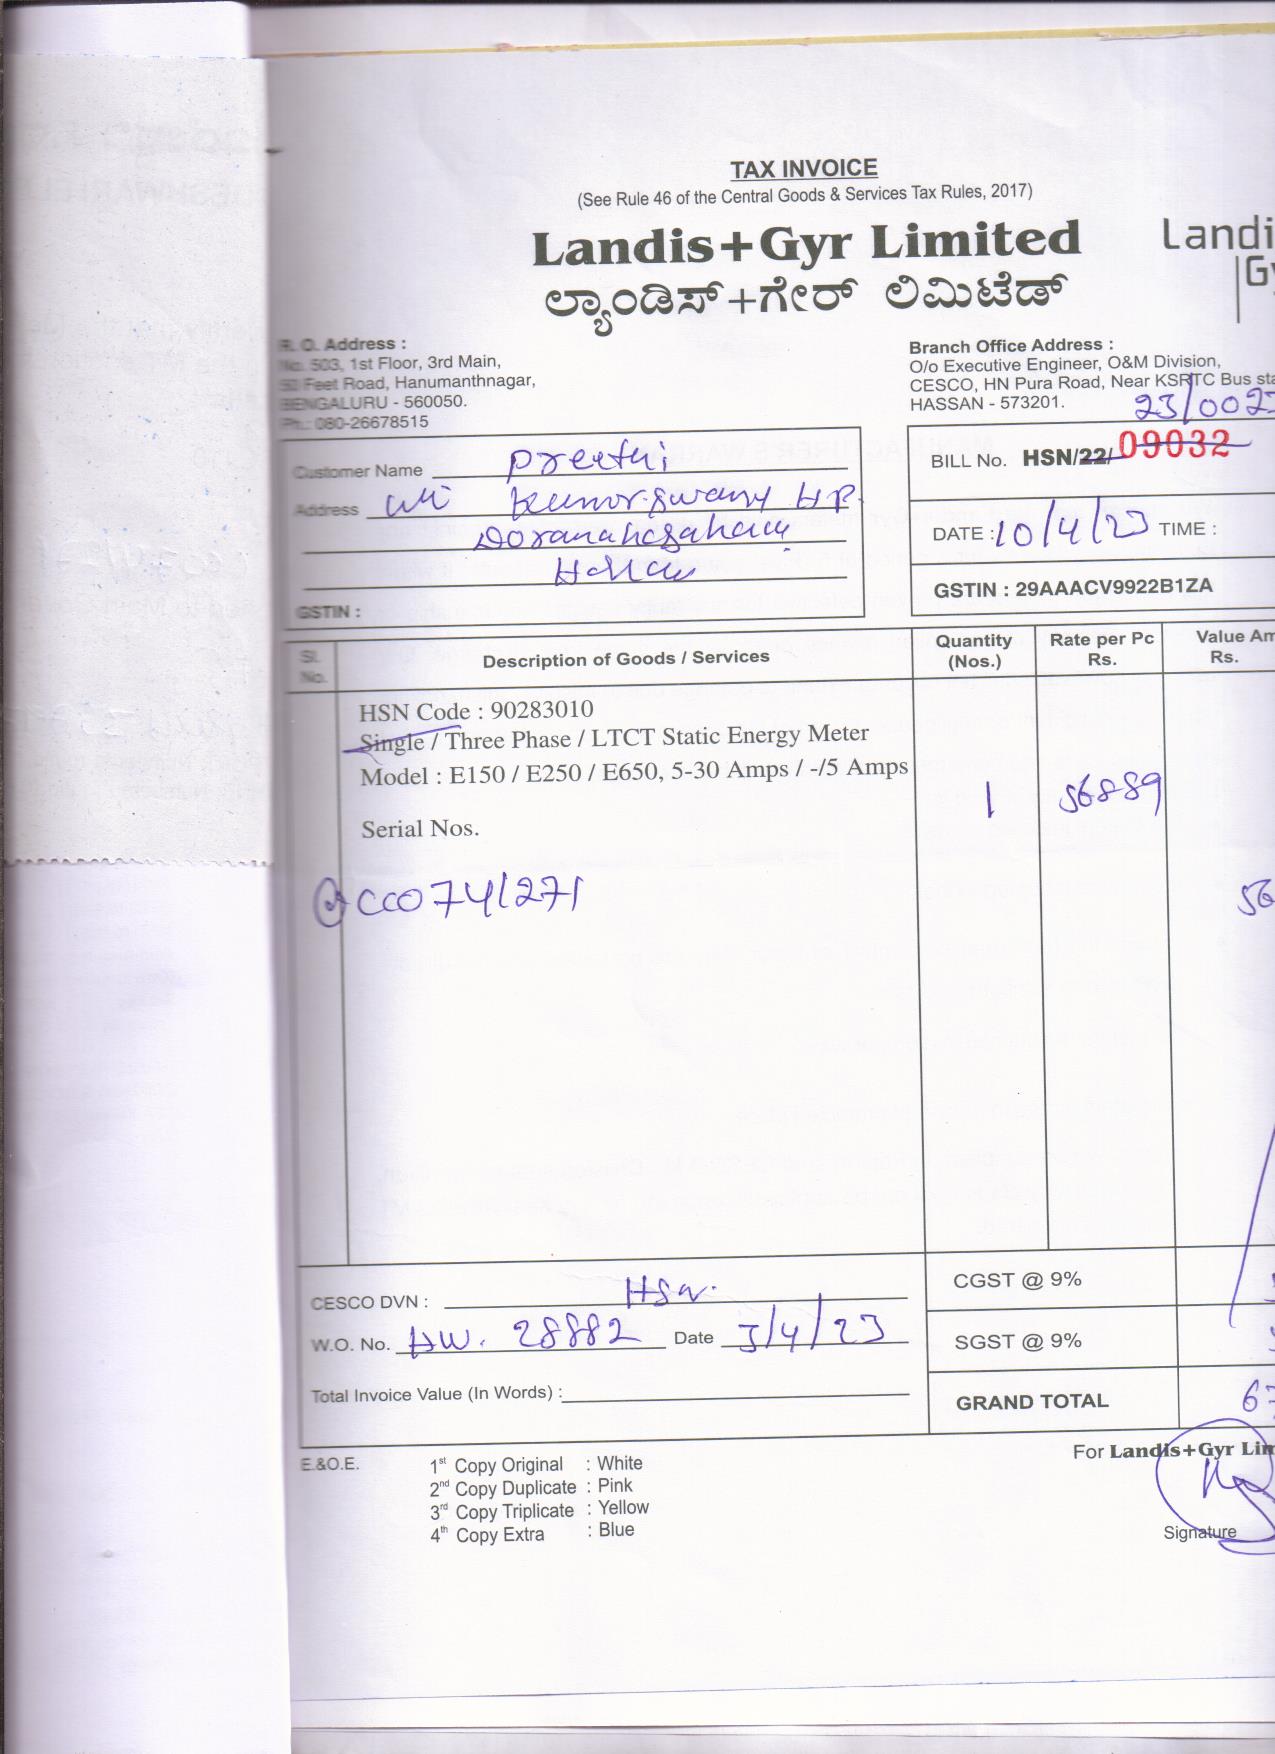 TAX INVOICE
(See Rule 46 of the Central Goods & Services Tax Rules, 2017)
Landis+Gyr Limited
ಲ್ಯಾಂಡಿಸ್+ಗೇರ್ ಲಿಮಿಟೆಡ್
Landi
Gy
R. O. Address :
No. 503, 1st Floor, 3rd Main,
50 Feet Road, Hanumanthnagar,
BENGALURU - 560050.
Ph.: 080-26678515
Branch Office Address :
O/o Executive Engineer, O&M Division,
CESCO, HN Pura Road, Near KSRTC Bus sta
HASSAN - 573201.
23/002
Customer Name Preethi
Address Kumarswamy H P
GSTIN :
BILL No. HSN/22/ 09032
DATE : 10/4/23 TIME :
GSTIN : 29AAACV9922B1ZA
Sl. No. Description of Goods / Services Quantity (Nos.) Rate per Pc Rs. Value Am Rs.
HSN Code : 90283010
Single / Three Phase / LTCT Static Energy Meter
Model : E150 / E250 / E650, 5-30 Amps / -/5 Amps
1 568.89
Serial Nos.
CC0741271
56
CESCO DVN : Hsn.
W.O. No. HW. 28882 Date 3/4/23
Total Invoice Value (In Words) :
CGST @ 9%
SGST @ 9%
GRAND TOTAL 67
E.&O.E.
1st Copy Original : White
2nd Copy Duplicate : Pink
3rd Copy Triplicate : Yellow
4th Copy Extra : Blue
For Landis+Gyr Lim
Signature